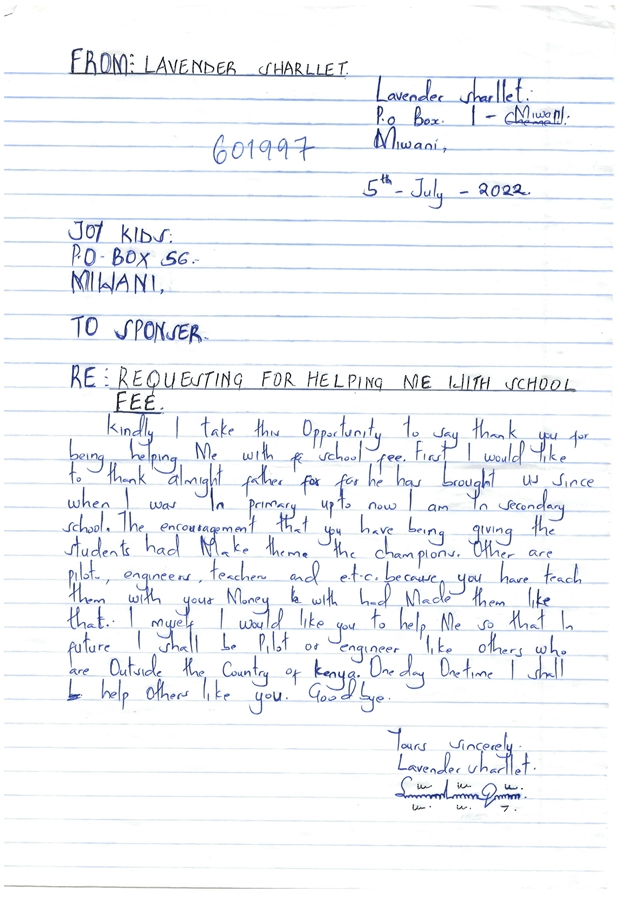 FROM: LAVENDER SHARLLET.
Lavender sharllet.
P.o Box. 1 - Miwani.
601997
Miwani,
5th - July - 2022.
JOY KIDS.
P.O - BOX 56.-
MIWANI,
TO SPONSER.
RE: REQUESTING FOR HELPING ME WITH SCHOOL
FEE.
Kindly I take this Opportunity to say thank you for
being helping Me with school fee. First I would like
to thank almight father for for he has brought us since
when I was In primary upto now I am In secondary
school. The encouragement that you have being giving the
students had Make theme the champions. Other are
pilot, engineers, teachers and e.t.c. because you have teach
them with your Money with had Made them like
that. I myself I would like you to help Me so that In
future I shall be Pilot or engineer like others who
are Outside the Country of Kenya. One day Onetime I shall
help others like you. Goodbye.
Yours sincerely.
Lavender sharllet.